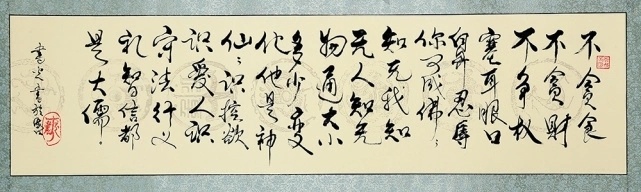 不贪食
不贪财
不争权
塞耳眼口
鼻忍辱
你可成佛：
知无我知
无人知无
物通大小
多少变
化他是神
仙：识控欲
识爱人识
守法行义
礼智信都
是大儒。